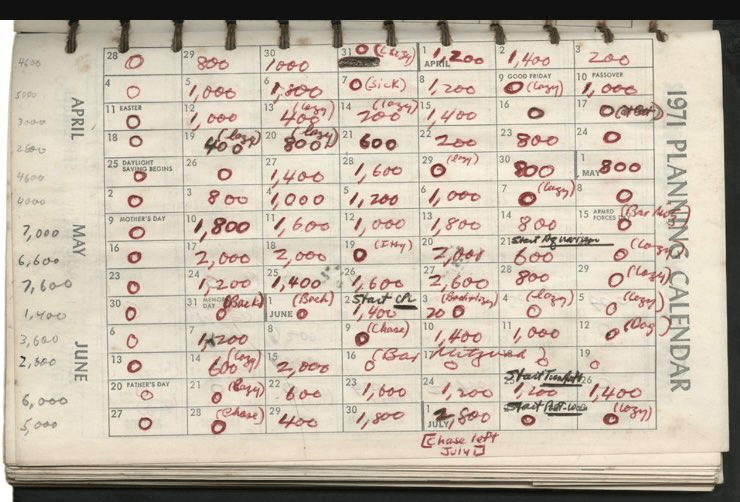 4600 28 0 29 800 30 1000 31 0 (Lazy) 1 APRIL 1,200 2 1,400 3 200
5000 4 0 5 1,000 6 1,800 7 0 (Sick) 8 1,200 9 GOOD FRIDAY 0 (lazy) 10 PASSOVER 1,000
11 EASTER 0 12 1,000 13 400 (lazy) 14 200 (lazy) 15 1,400 16 0 17 0
2800 18 0 19 400 (lazy) 20 800 (lazy) 21 600 22 200 23 800 24 0
4600 25 DAYLIGHT SAVING BEGINS 0 26 0 27 1,400 28 1,600 29 0 (lazy) 30 800 1 MAY 800
4000 2 0 3 800 4 1,000 5 1,200 6 1,000 7 0 (lazy) 8 0
7,000 9 MOTHER'S DAY 0 10 1,800 11 1,600 12 1,000 13 1,800 14 800 15 ARMED FORCES 0
6,600 16 0 17 2,000 18 2,000 19 0 20 2,000 21 Start Aquarian 600 22 0 (Lazy)
7,600 23 0 24 1,200 25 1,400 26 1,600 27 2,600 28 800 29 0 (Lazy)
1,400 30 0 31 MEMORIAL DAY 0 (Bach) 1 JUNE 0 (Bach) 2 Start 1,400 3 0 4 0 (lazy) 5 0 (lazy)
3,600 6 0 7 1,200 8 9 0 (Chase) 10 1,400 11 1,000 12 0 (Dog)
13 0 14 600 (lazy) 15 2,000 16 0 (Bar 17 Mitzvah 18 0 19 0
6,000 20 FATHER'S DAY 0 21 0 (lazy) 22 600 23 1,000 24 1,200 25 Start 1,200 26 1,400
5,000 27 0 28 0 (Chase) 29 400 30 1,800 1 JULY 2,800 Start 0 0 (lazy)
[Chase left
July]
APRIL
MAY
JUNE
1971 PLANNING CALENDAR